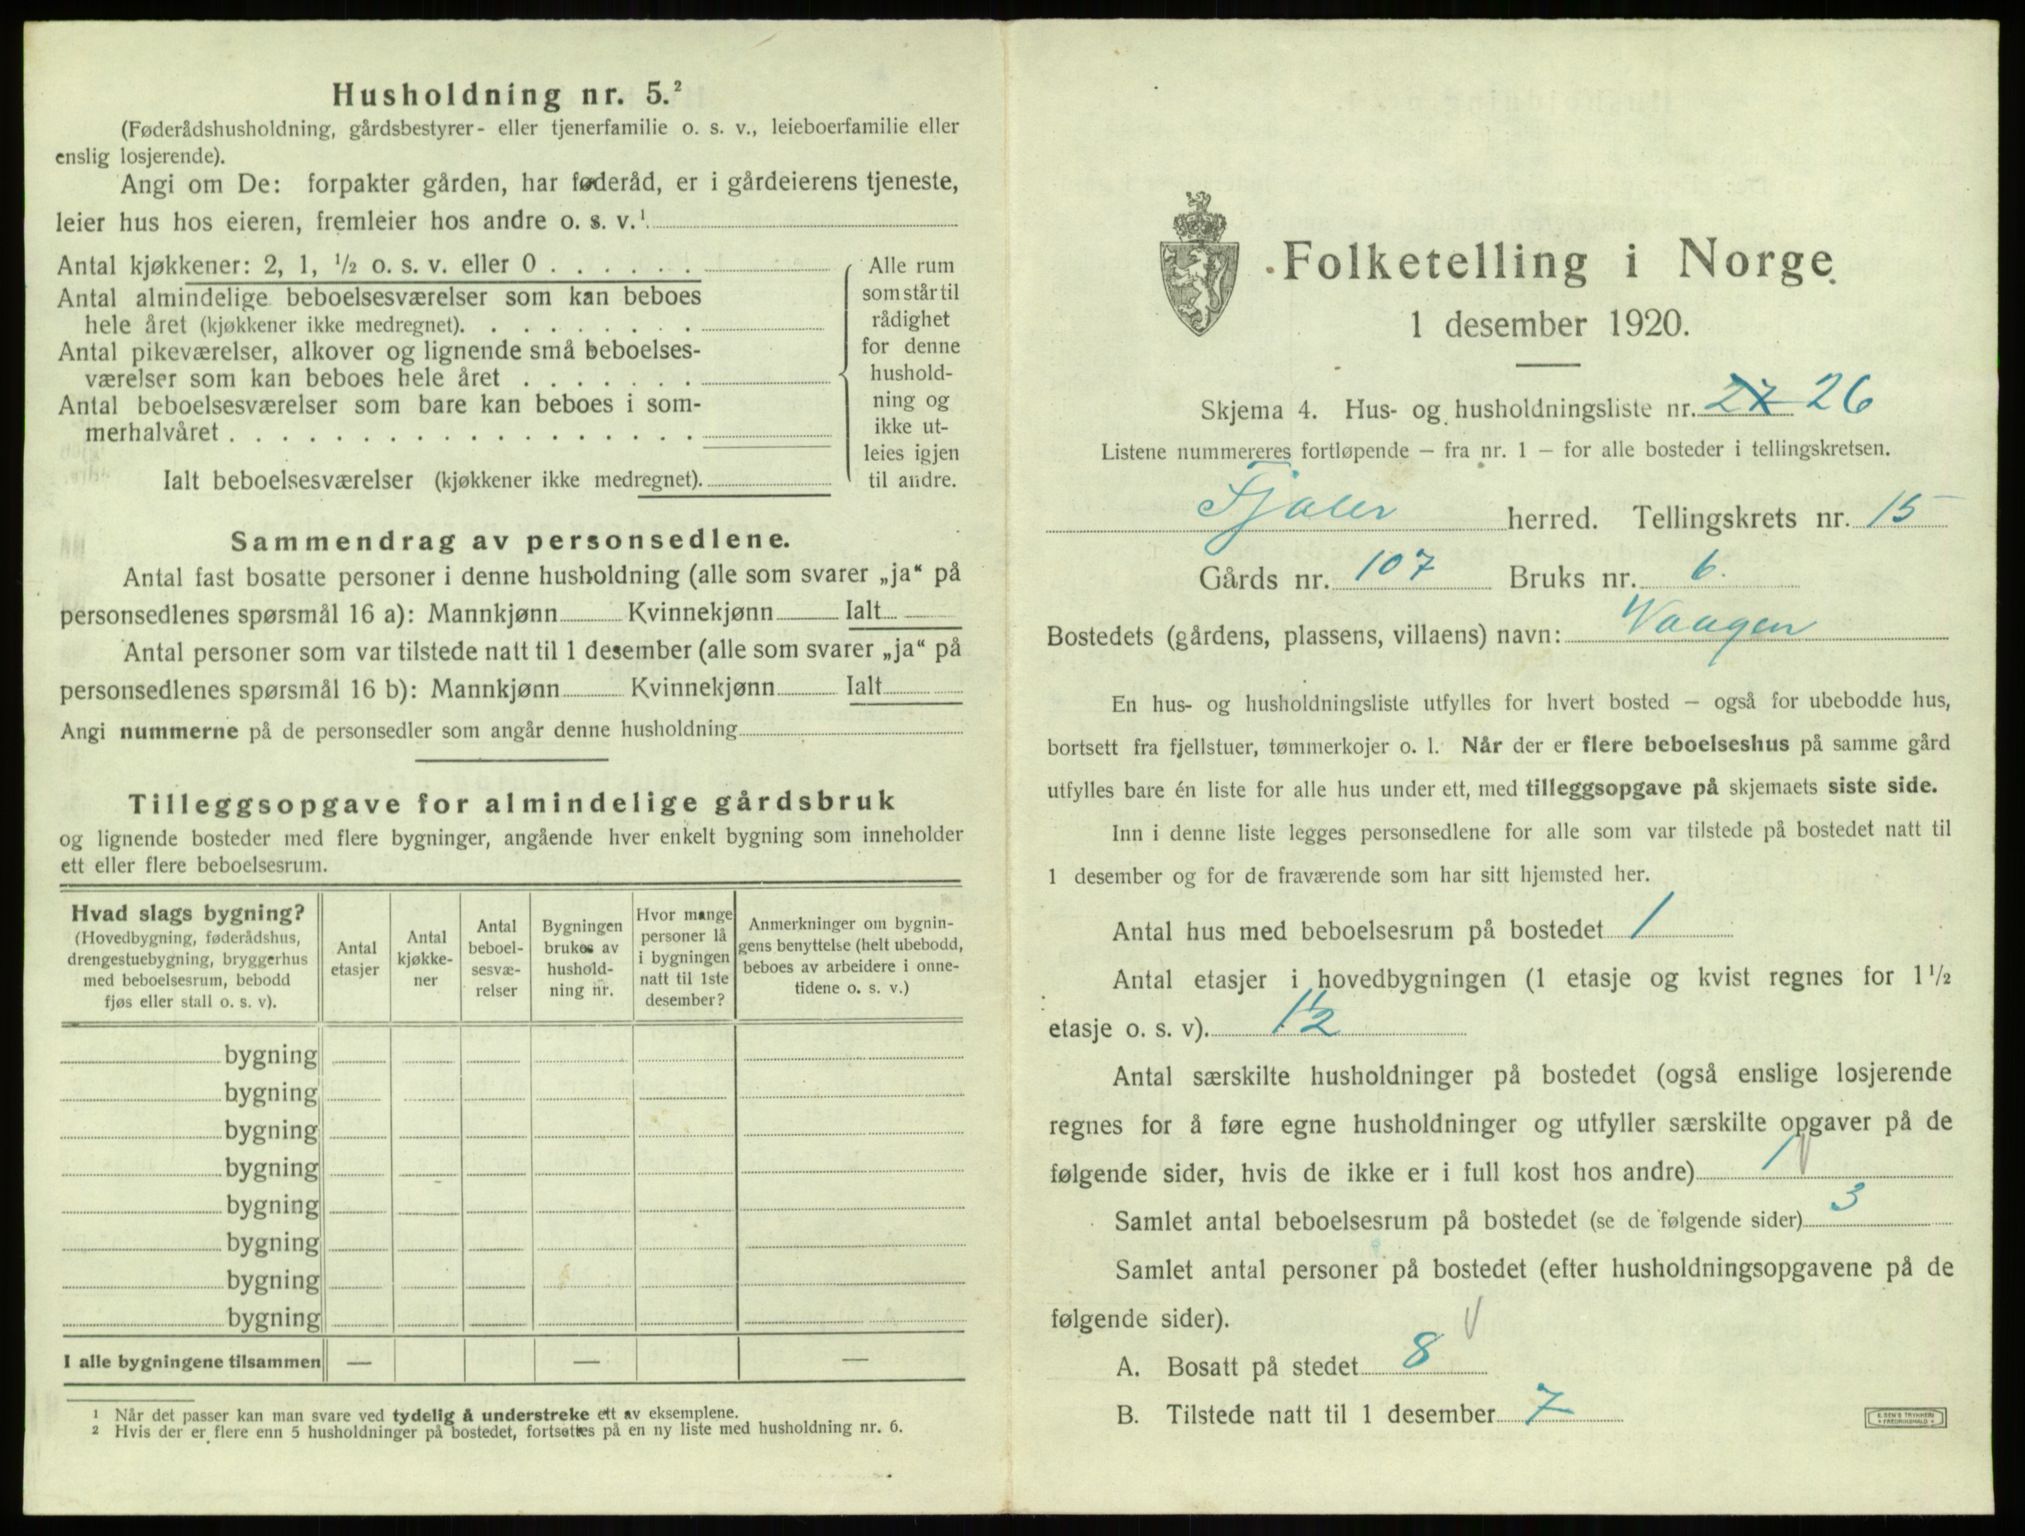 Husholdning nr. 5.²
(Føderådshusholdning, gårdsbestyrer- eller tjenerfamilie o. s. v., leieboerfamilie eller
enslig losjerende).
Angi om De: forpakter gården, har føderåd, er i gårdeierens tjeneste,
leier hus hos eieren, fremleier hos andre o. s. v.¹
Antal kjøkkener: 2, 1, ½ o. s. v. eller 0 . . . . . .
Antal almindelige beboelsesværelser som kan beboes
hele året (kjøkkener ikke medregnet). . . . . . . . .
Antal pikeværelser, alkover og lignende små beboelses-
værelser som kan beboes hele året . . . . . . .
Antal beboelsesværelser som bare kan beboes i som-
merhalvåret . . . . . . . . . . . . . . . . . .
Ialt beboelsesværelser (kjøkkener ikke medregnet).
Alle rum
som står til
rådighet
for denne
hushold-
ning og
ikke ut-
leies igjen
til andre.
Sammendrag av personsedlene.
Antal fast bosatte personer i denne husholdning (alle som svarer „ja“ på
personsedlenes spørsmål 16 a): Mannkjønn Kvinnekjønn Ialt
Antal personer som var tilstede natt til 1 desember (alle som svarer „ja“ på
personsedlenes spørsmål 16 b): Mannkjønn Kvinnekjønn Ialt
Angi nummerne på de personsedler som angår denne husholdning
Tilleggsopgave for almindelige gårdsbruk
og lignende bosteder med flere bygninger, angående hver enkelt bygning som inneholder
ett eller flere beboelsesrum.
Hvad slags bygning?
(Hovedbygning, føderådshus,
drengestuebygning, bryggerhus
med beboelsesrum, bebodd
fjøs eller stall o. s. v).
Antal
etasjer
Antal
kjøkke-
ner
Antal
beboel-
sesvæ-
relser
Bygningen
brukes av
hushold-
ning nr.
Hvor mange
personer lå
i bygningen
natt til 1ste
desember?
Anmerkninger om bygnin-
gens benyttelse (helt ubebodd,
beboes av arbeidere i onne-
tidene o. s. v.)
bygning
bygning
bygning
bygning
bygning
bygning
bygning
bygning
I alle bygningene tilsammen — — —
¹ Når det passer kan man svare ved tydelig å understreke ett av eksemplene.
² Hvis der er flere enn 5 husholdninger på bostedet, fortsettes på en ny liste med husholdning nr. 6.
Folketelling i Norge.
1 desember 1920.
Skjema 4. Hus- og husholdningsliste nr. 27 26
Listene nummereres fortløpende — fra nr. 1 — for alle bosteder i tellingskretsen.
Fjaler herred. Tellingskrets nr. 15
Gårds nr. 107 Bruks nr. 6.
Bostedets (gårdens, plassens, villaens) navn: Vaagen
En hus- og husholdningsliste utfylles for hvert bosted — også for ubebodde hus,
bortsett fra fjellstuer, tømmerkojer o. l. Når der er flere beboelseshus på samme gård
utfylles bare én liste for alle hus under ett, med tilleggsopgave på skjemaets siste side.
Inn i denne liste legges personsedlene for alle som var tilstede på bostedet natt til
1 desember og for de fraværende som har sitt hjemsted her.
Antal hus med beboelsesrum på bostedet 1
Antal etasjer i hovedbygningen (1 etasje og kvist regnes for 1½
etasje o. s. v). 1½
Antal særskilte husholdninger på bostedet (også enslige losjerende
regnes for å føre egne husholdninger og utfyller særskilte opgaver på de
følgende sider, hvis de ikke er i full kost hos andre) 1
Samlet antal beboelsesrum på bostedet (se de følgende sider) 3
Samlet antal personer på bostedet (efter husholdningsopgavene på de
følgende sider).
A. Bosatt på stedet 8
B. Tilstede natt til 1 desember 7